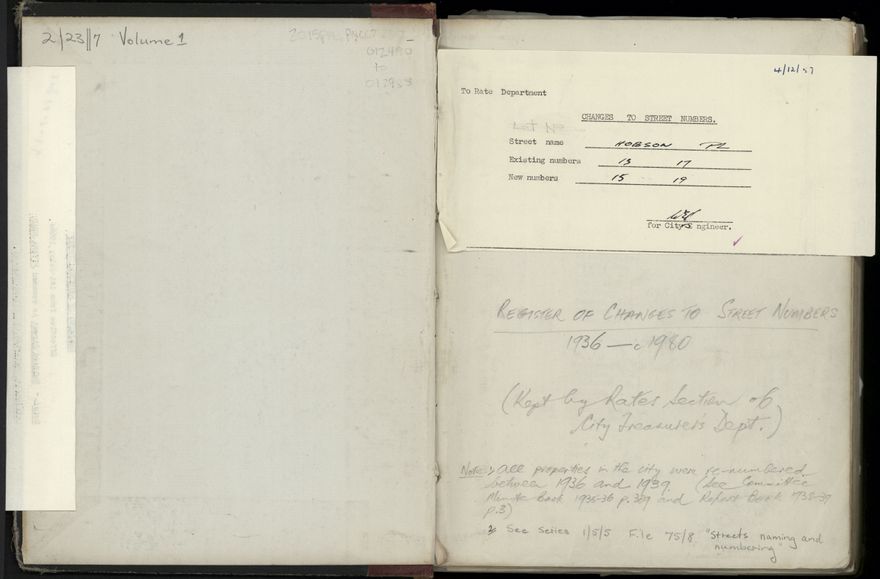 2/23//7 Volume 1
012490
to
4/12/57
To Rate Department
CHANGES TO STREET NUMBERS.
Street name HOBSON PL
Existing numbers 13 17
New numbers 15 19
for City Engineer.
REGISTER OF CHANGES TO STREET NUMBERS
1936 — c 1980
(Kept by Rates Section of
City Treasurer's Dept.)
Note: 1, All properties in the city were re-numbered
between 1936 and 1939. (See Committee
Minute Book 1935-36 p.389 and Report Book 1938-39
p.3)
2, See Series 1/5/5 File 75/8 "Streets naming and
numbering"